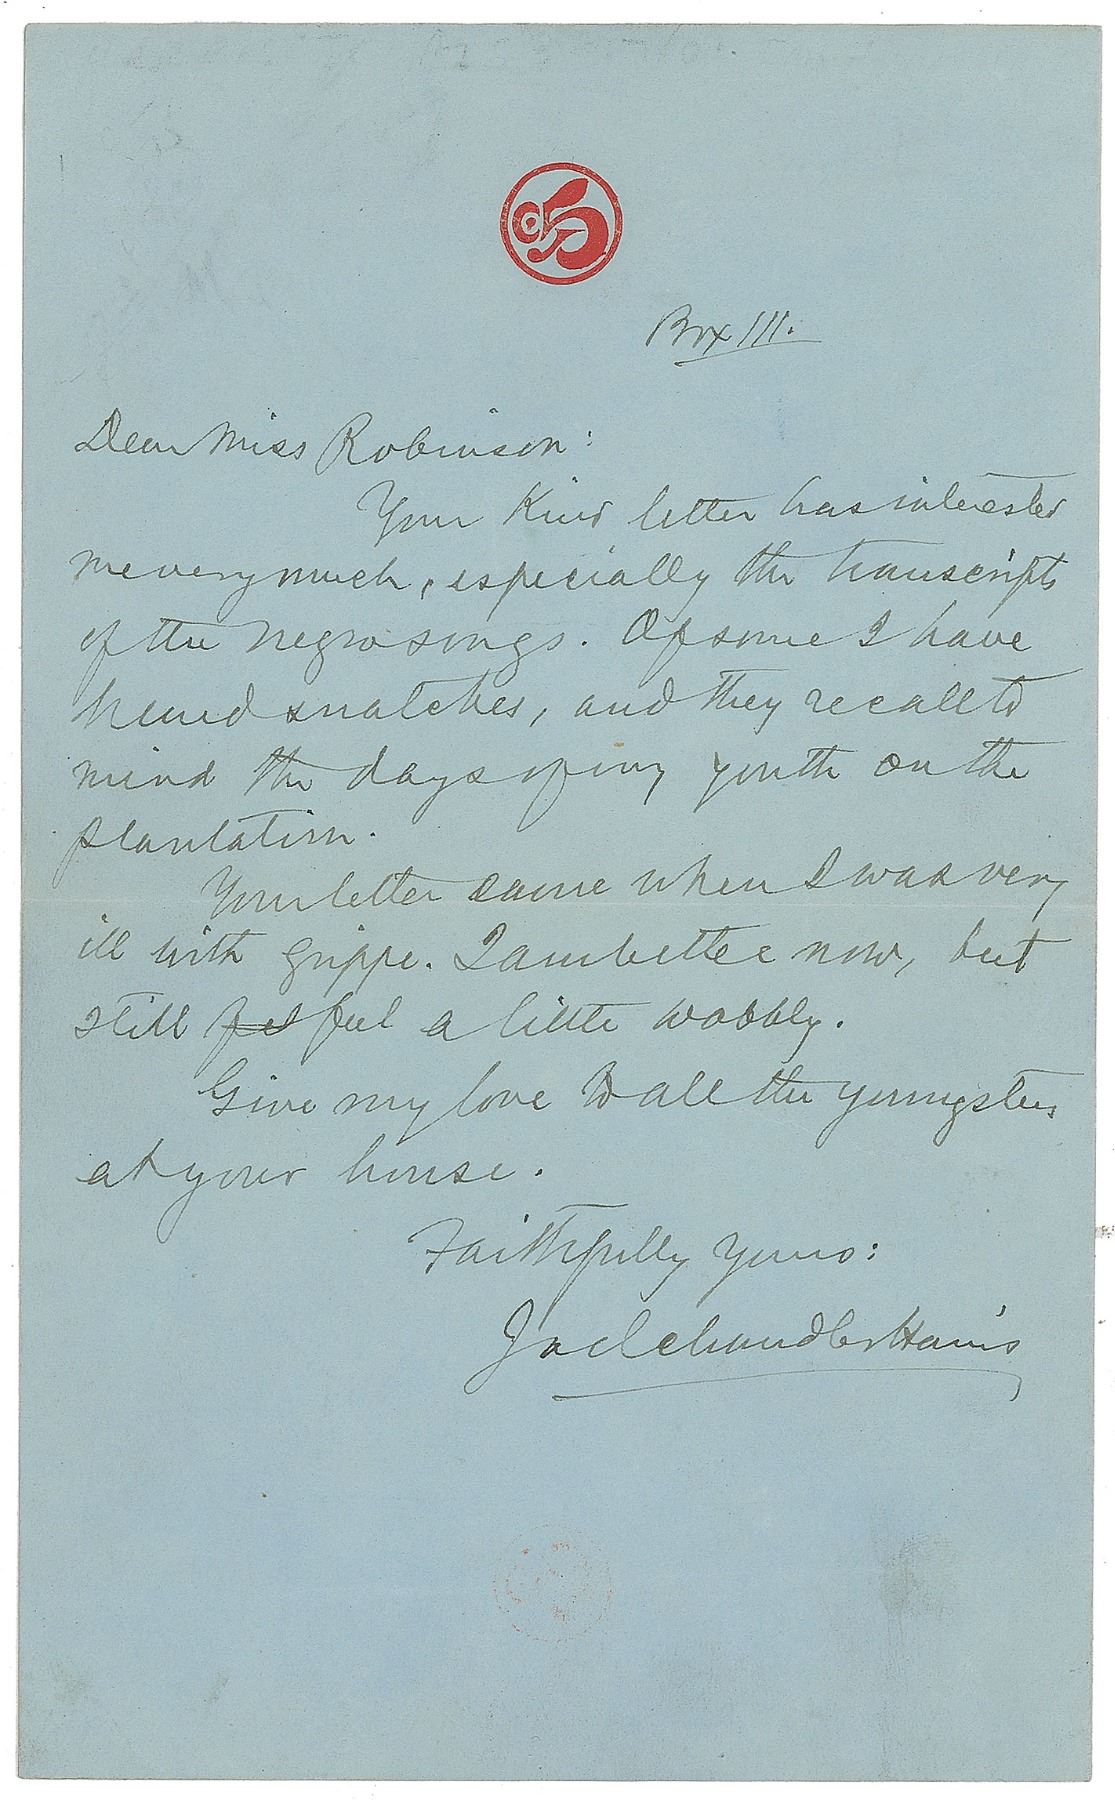 Box 111.
Dear Miss Robinson:
Your kind letter has interested
me very much, especially the transcripts
of the negro songs. Of some I have
heard snatches, and they recall to
mind the days of my youth on the
plantation.
Your letter came when I was very
ill with grippe. I am better now, but
still fel feel a little wobbly.
Give my love to all the youngsters
at your house.
Faithfully yours:
Joel Chandler Harris